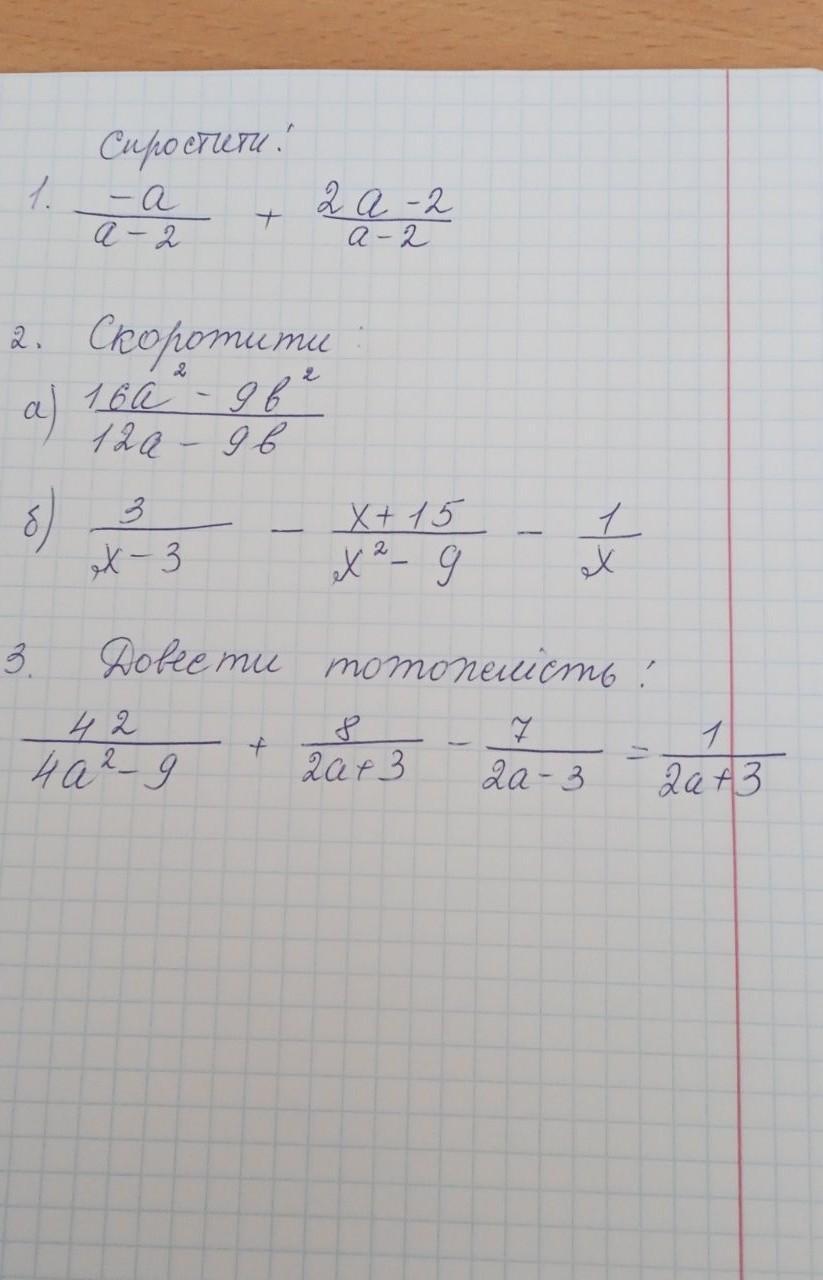 Спростити!
1. -a/(a-2) + (2a-2)/(a-2)
2. Скоротити:
а) (16a² - 9b²)/(12a - 9b)
б) 3/(x-3) - (x+15)/(x²-9) - 1/x
3. Довести тотожність!
42/(4a²-9) + 8/(2a+3) - 7/(2a-3) = 1/(2a+3)